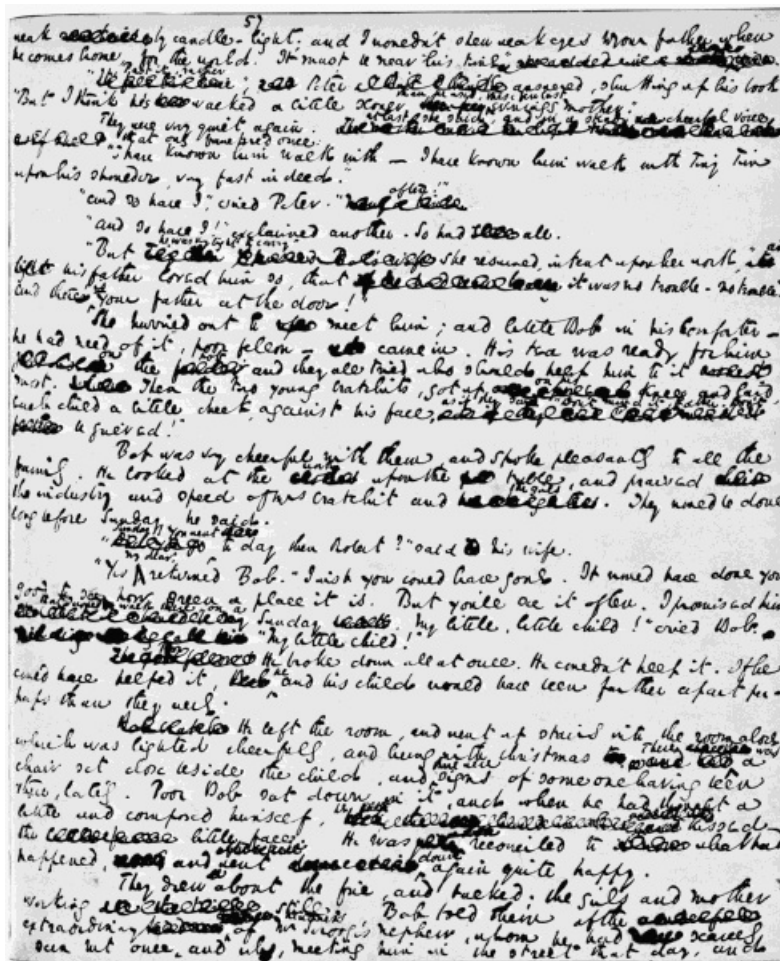 57
weak by candle-light, and I wouldn't shew weak eyes to your father when
he comes home, for the world. It must be near his time
"Past it rather," Peter answered, shutting up his book
"But I think he's walked a little slower than he used, these few last evenings, mother."
They were very quiet again. At last she said, and in a steady cheerful voice
that only faltered once.
"I have known him walk with — I have known him walk with Tiny Tim
upon his shoulder, very fast indeed."
"And so have I," cried Peter. "often!"
"and so have I!" exclaimed another. So had all.
"But he was very light to carry" she resumed, intent upon her work, and
his father loved him so, that it was no trouble - no trouble
and there is your father at the door!"
She hurried out to meet him; and little Bob in his comforter —
he had need of it, poor fellow — came in. His tea was ready for him
on the hob and they all tried who should help him to it
most. Then the two young Cratchits got up on his knees and laid,
each child a little cheek, against his face, as if they said "Don't mind it father. Don't
be grieved!"
Bob was very cheerful with them, and spoke pleasantly to all the
family. He looked at the work upon the table, and praised
the industry and speed of Mrs Cratchit and the girls. They would be done
long before Sunday he said.
"Sunday! You went to day then Robert?" said his wife.
"Yes my dear" returned Bob. "I wish you could have gone. It would have done you
good to see how green a place it is. But you'll see it often. I promised him
that I would walk there on a Sunday. My little, little child!" cried Bob.
"My little child!"
He broke down all at once. He couldn't help it. If he
could have helped it, he and his child would have been farther apart per-
haps than they were.
He left the room, and went up stairs into the room above
which was lighted cheerfully, and hung with Christmas. There was a
chair set close beside the child, and there were signs of someone having been
there, lately. Poor Bob sat down in it, and when he had thought a
little and composed himself, he kissed
the little face. He was reconciled to what had
happened, and went down again quite happy.
They drew about the fire, and talked; the girls and mother
working still. Bob told them of the
extraordinary kindness of Mr Scrooge's nephew, whom he had scarcely
seen but once, and who, meeting him in the street that day, and